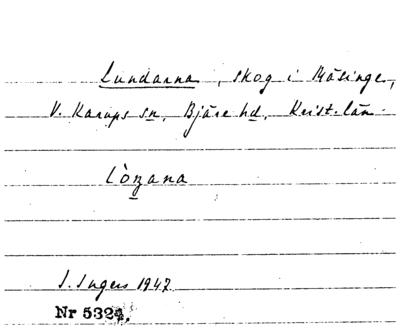 Lundarna, skog i Påsinge,
V. Karups sn, Bjäre hd, Krist. län.
I. Ingers 1947
Nr 5324.